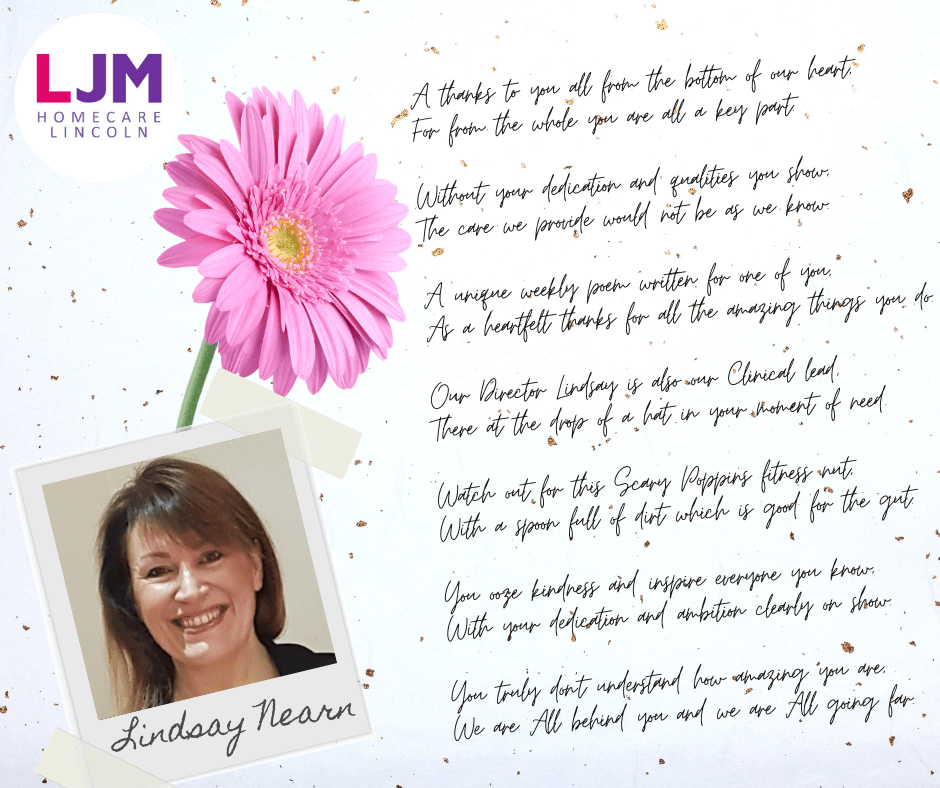 LJM
HOMECARE
LINCOLN
A thanks to you all from the bottom of our heart,
For from the whole you are all a key part.
Without your dedication and qualities you show,
The care we provide would not be as we know.
A unique weekly poem written for one of you,
As a heartfelt thanks for all the amazing things you do.
Our Director Lindsay is also our Clinical lead,
There at the drop of a hat in your moment of need.
Watch out for this Scary Poppins fitness nut,
With a spoon full of dirt which is good for the gut.
You ooze kindness and inspire everyone you know,
With your dedication and ambition clearly on show.
You truly don't understand how amazing you are,
We are All behind you and we are All going far.
Lindsay Nearn